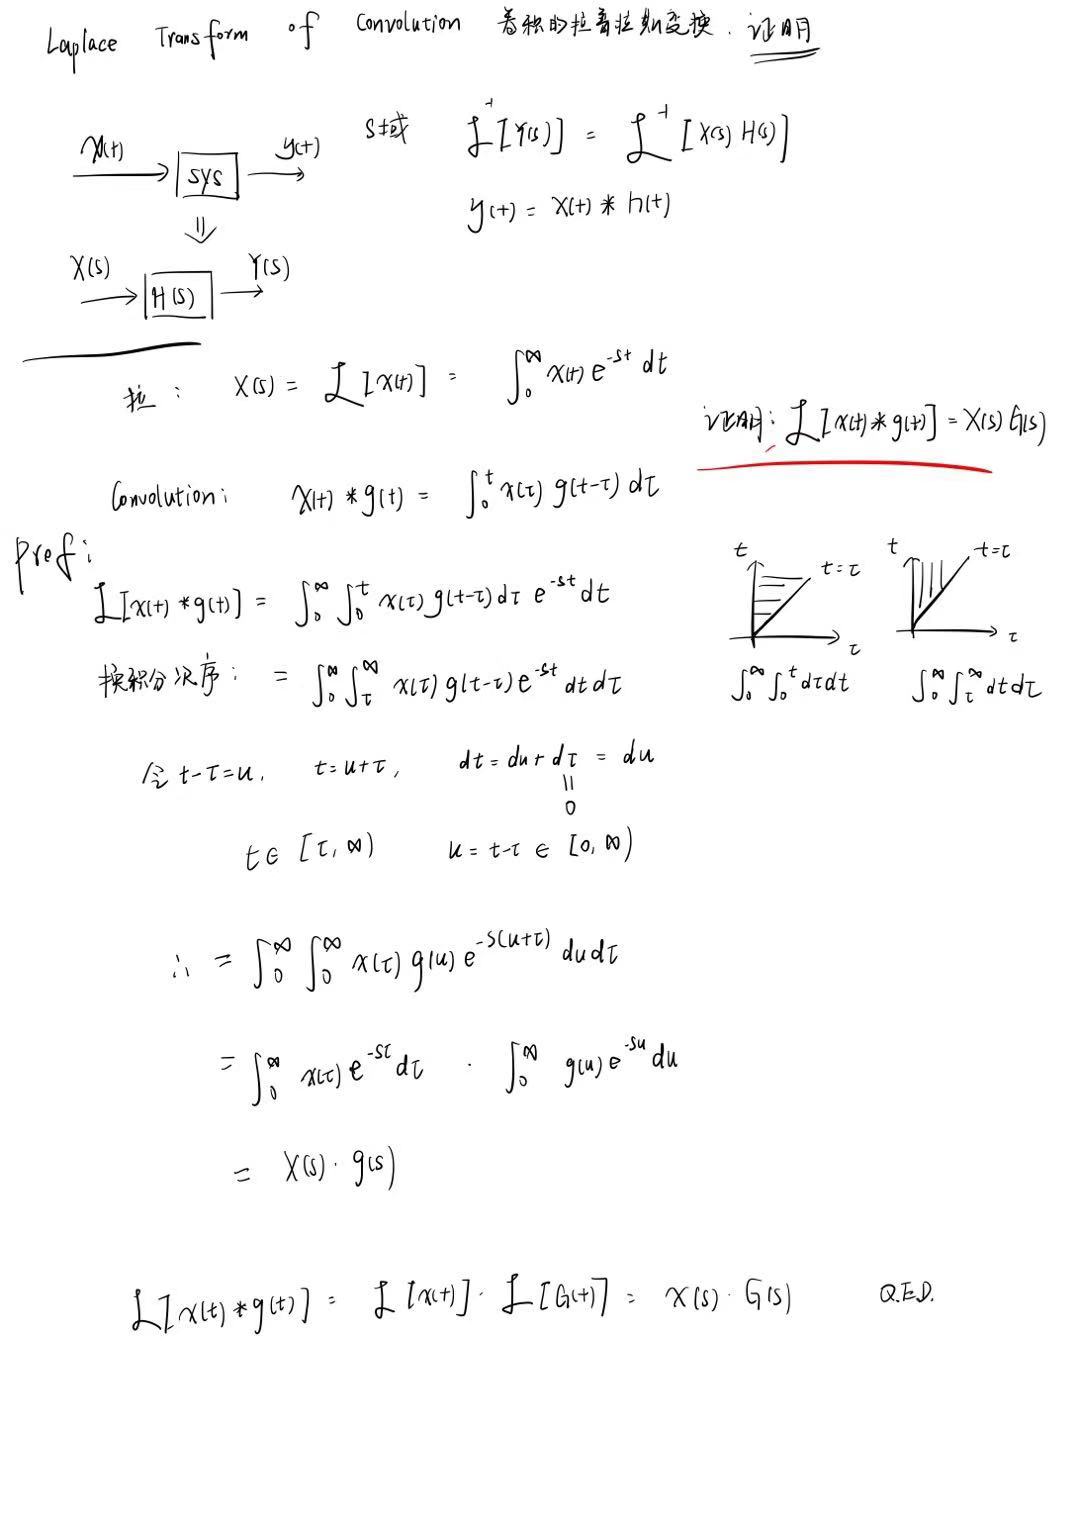 Laplace Transform of Convolution 卷积的拉普拉斯变换. 证明
x(t) SYS y(t)
S域 ℒ⁻¹[Y(s)] = ℒ⁻¹[X(s) H(s)]
y(t) = x(t) * h(t)
⇓
X(s) H(s) Y(s)
拉: X(s) = ℒ[x(t)] = ∫₀^∞ x(t) e^{-st} dt
证明: ℒ[x(t) * g(t)] = X(s) G(s)
Convolution: x(t) * g(t) = ∫₀^t x(τ) g(t-τ) dτ
Pref:
ℒ[x(t) * g(t)] = ∫₀^∞ ∫₀^t x(τ) g(t-τ) dτ e^{-st} dt
换积分次序: = ∫₀^∞ ∫_τ^∞ x(τ) g(t-τ) e^{-st} dt dτ
t t=τ τ
∫₀^∞ ∫₀^t dτ dt
t t=τ τ
∫₀^∞ ∫_τ^∞ dt dτ
令 t-τ=u, t=u+τ, dt = du + dτ = du
=
0
t ∈ [τ, ∞) u = t-τ ∈ [0, ∞)
∴ = ∫₀^∞ ∫₀^∞ x(τ) g(u) e^{-s(u+τ)} du dτ
= ∫₀^∞ x(τ) e^{-sτ} dτ · ∫₀^∞ g(u) e^{-su} du
= X(s) · g(s)
ℒ[x(t) * g(t)] = ℒ[x(t)] · ℒ[G(t)] = X(s) · G(s) Q.E.D.